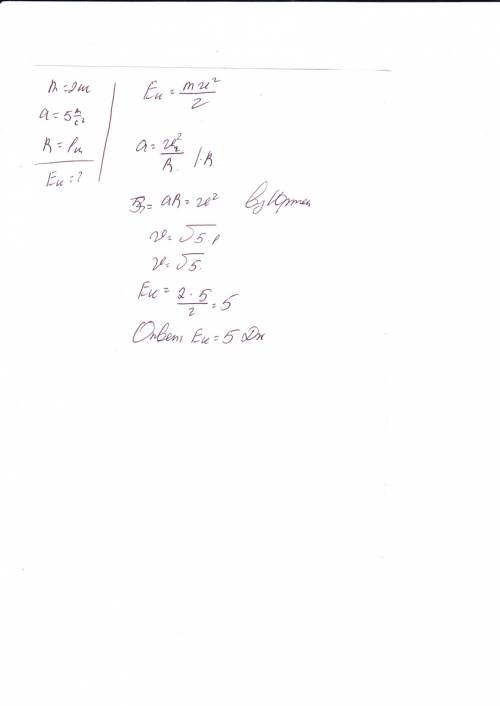 m = 2т
a = 5 м/с²
R = 1м
Eк = ?
Eк = mv²/2
a = v²/R | · R
aR = v²
v = √5·1
v = √5
Eк = 2 · 5/2 = 5
Ответ Eк = 5 Дж